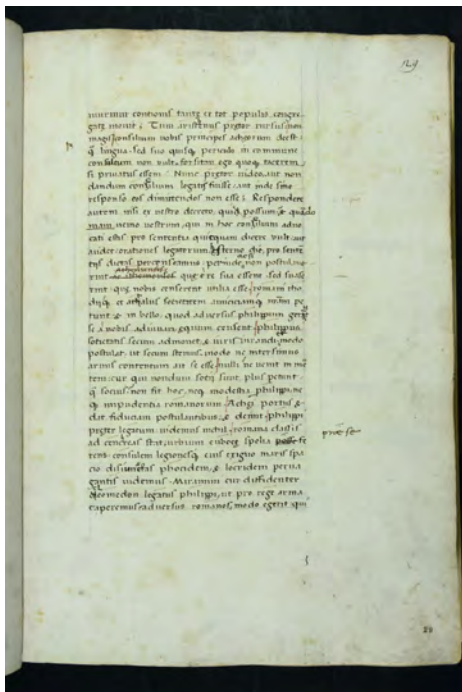 129
murmur contionis tantę et tot populis congre
gatę mouit; Tum aristenus prętor rursus non
magis consilium uobis principes acheorum deest
ꝗ lingua. sed suo quisq; periculo in commune
consultum non uult. forsitan ego quoq; tacerem
si priuatus essem: Nunc prętor uideo, aut non
dandum consilium legatis fuisse: aut inde sine
responso eos dimittendos non esse: Respondere
autem nisi ex uestro decreto, qui possum? & quādo
nemo uestrum, qui in hoc consilium aduo
cati estis pro sententia quicquam dicere uult: aut
audet: orationes legatorum hesterno die, pro senten
tiis dictas percenseamus: perinde, non postulaue
rint quę e re sua essent: sed suase
rint: quę nobis censerent utilia esse: romani rho
diiq; et athalus societatem amiciciamq; nr̄am pe
tunt: & in bello: quod aduersus philippum gerūt
se a nobis adiuuari, equum censent: philippus
sotietatis secum admonet & iuris iurandi: modo
postulat: ut secum stemus, modo ne intersimus
armis contentum ait se esse: nulli ne uenit in mē
tem: cur qui nondum sotii sunt, plus petant
ꝗ socius? non fit hoc, neq; modestia philippi, ne
q; impudentia romanorum: portus &
dat fiduciam postulantibus: & demit: philippi
pręter legatum uidemus nihil: romana classis
ad cencreas stat, urbium euboeę spolia fe
rens: consulem legionesq; eius exiguo maris spa
cio disiunctas phocidem, & locridem perua
gantis uidemus. Miramini cur diffidenter
cleomedon legatus philippi, ut pro rege arma
caperemus aduersus romanos, modo egerit qui
prae se
29